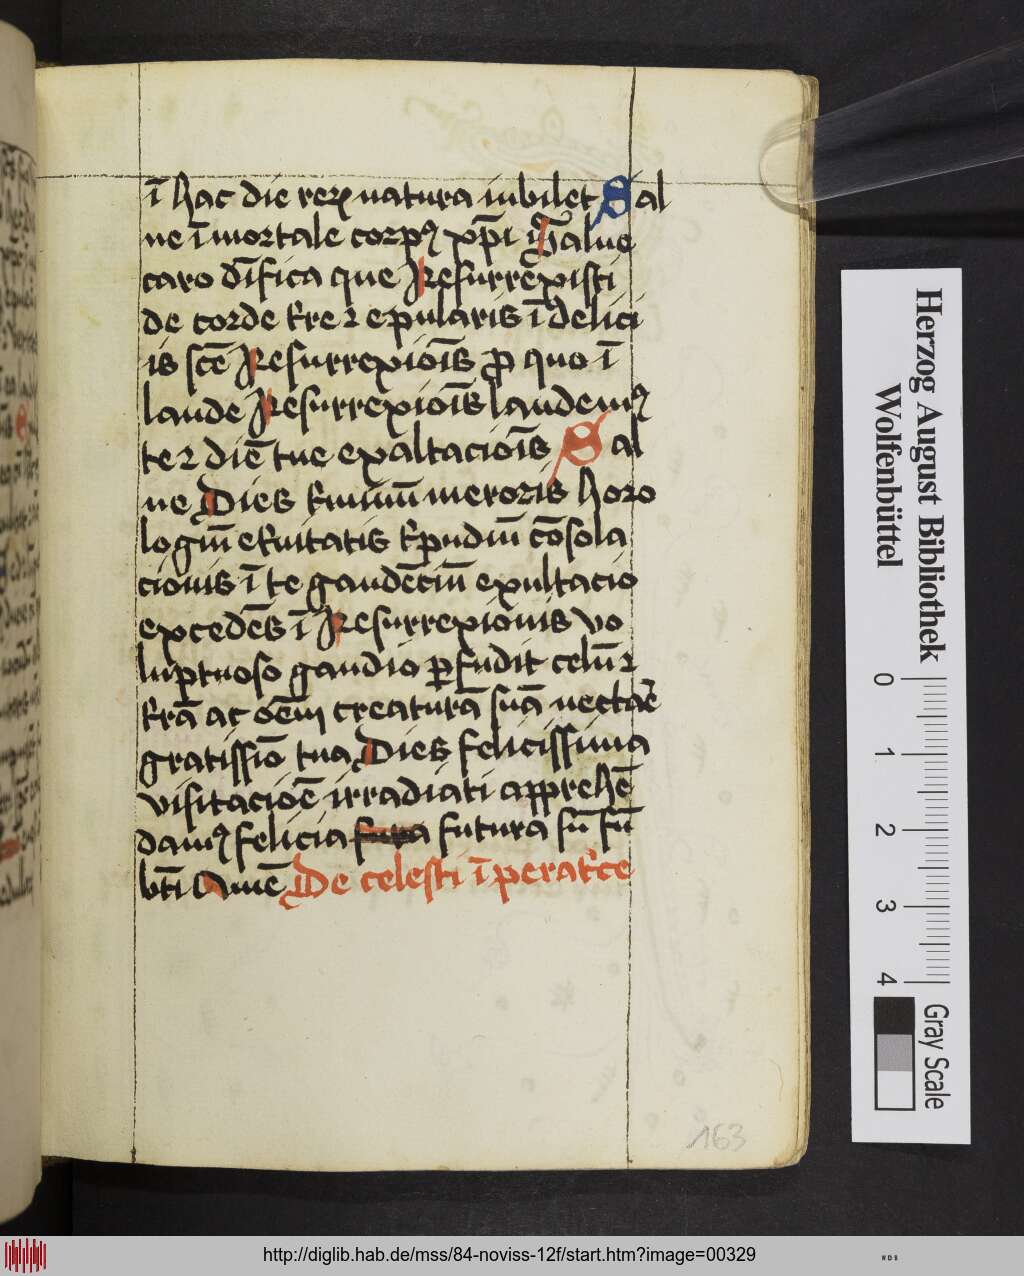 ī hac die reꝝ natura iubilet Sal
ue īmortale corpꝰ xp̄i Salue
caro dīfica que Resurrexisti
de corde tr̄e ⁊ epularis ī delici
is sc̄e Resurrexiōis ꝓ quo ī
laude Resurrexiōis laudemꝰ
te ⁊ diē tue exaltaciōis Sal
ue Dies t̄minū meroris horo
logiū et̄nitatis t̄pudiū cōsola
cionis ī te gaudēciū exultacio
excedēs ī Resurrexionis vo
luptuoso gaudio ꝑfudit celū ⁊
tr̄ā ac oēm creaturā suā nectaē
gratissīo tua Dies felicissima
visitacioē irradiati apprehē
damꝰ felicia futura sū sū
bt̄i Amē De celesti īperatͥce
163
Herzog August Bibliothek
Wolfenbüttel
0 1 2 3 4
Gray Scale
http://diglib.hab.de/mss/84-noviss-12f/start.htm?image=00329